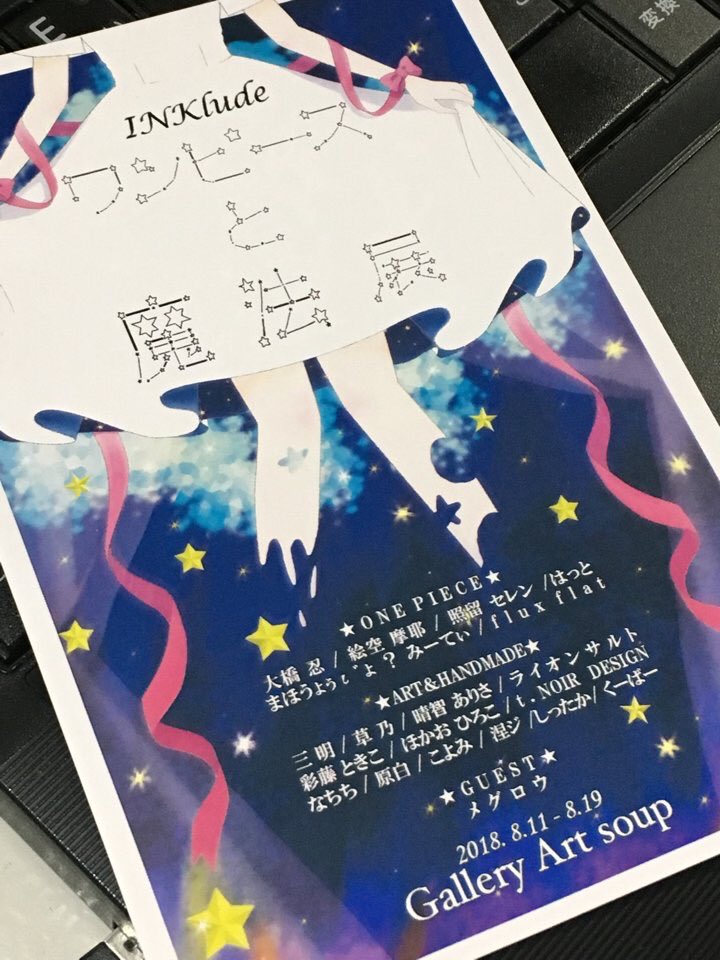 E
変換
INKlude
ワンピース
と
魔法展
★ONE PIECE★
大橋 忍 / 絵空 摩耶 / 照留 セレン /はっと
まほうょぅι゛ょ？ みーてぃ/ flux flat
★ART&HANDMADE★
三明 / 草乃 / 晴智 ありさ / ライオンサルト
彩藤 ときこ / ほかお ひろこ / t．NOIR DESIGN
なちち / 原白 / こよみ / 涅ジ /しったか/ くーばー
★GUEST★
メグロウ
2018. 8.11 - 8.19
Gallery Art soup